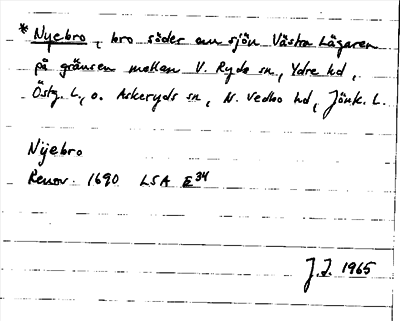 * Nyebro, bro söder om sjön Västra Lägaren
på gränsen mellan V. Ryds sn, Ydre hd,
Östg. L, o. Askeryds sn, N. Vedbo hd, Jönk. L.
Nÿebro
Renov. 1690 LSA E34
J.J. 1965